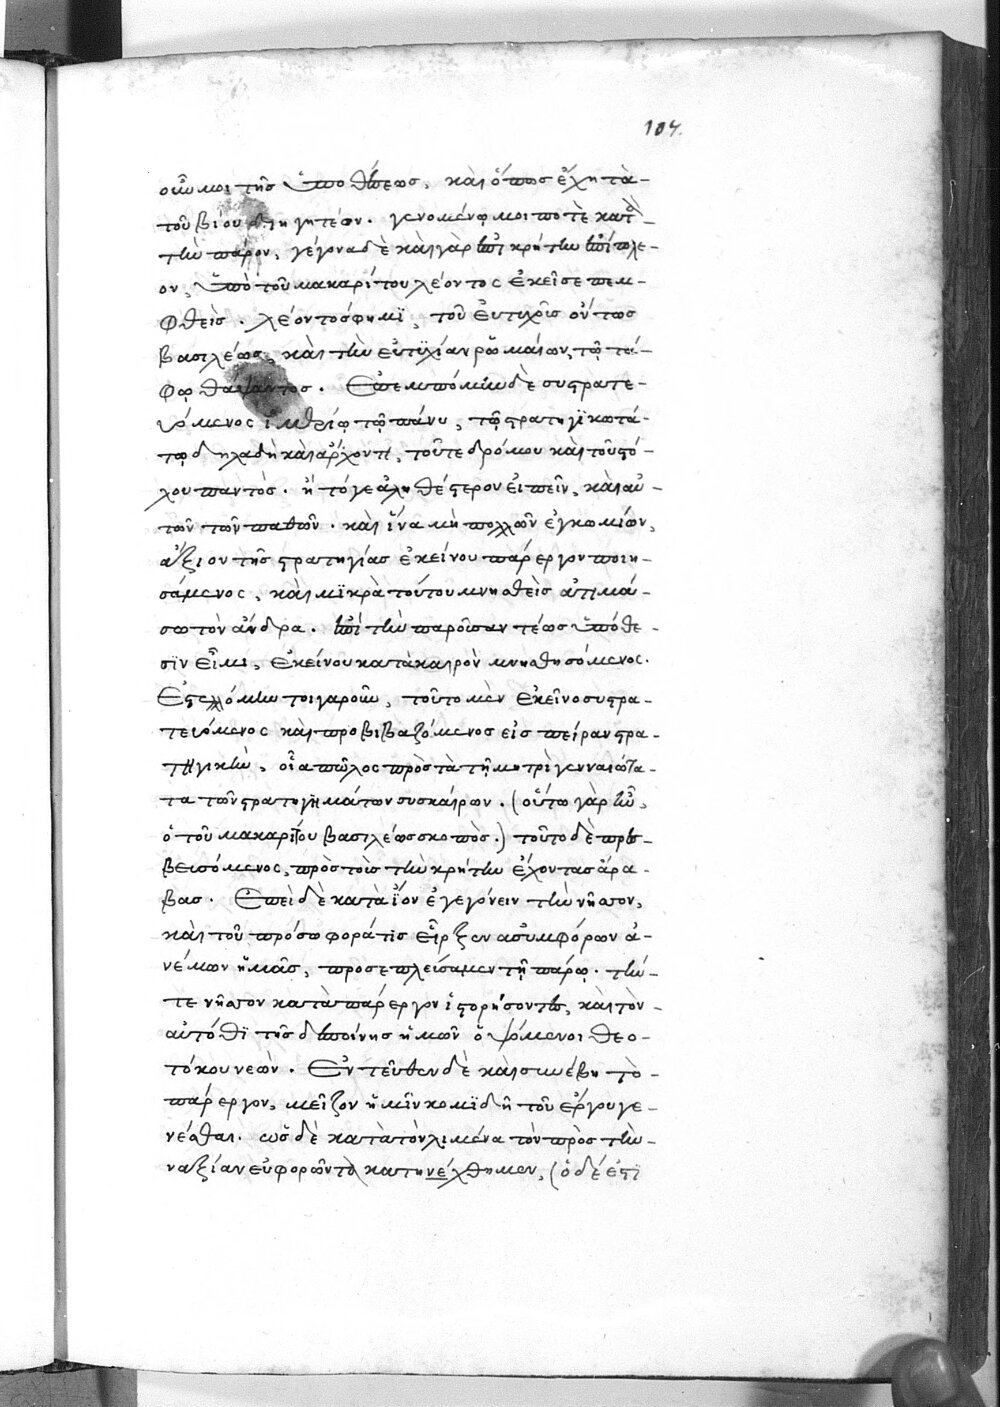 104.
οὖν μοι τῆς ὑποθέσεως, καὶ ὅπως ἔχη τὰ-
τοῦ βίου διηγητέον. γενομένῳ μοι ποτὲ κατὰ
τὴν πάρον, γέγονα δὲ καὶ γὰρ ἐπὶ κρήτην ἐπίπλε-
ον, ὑπὸ τοῦ μακαρίτου λέοντος ἐκεῖσε πεμ-
φθείς. λέοντός φημϊ, τοῦ εὐτυχοῦς οὕτως
βασιλέως, καὶ τὴν εὐτϋχίαν ῥωμαίων, τῷ τά-
φῳ θάψαντος. ἐπεμπόμην δὲ συστρατε-
υόμενος ἱμερίῳ τῷ πάνυ, τῷ στρατηγϊκωτά-
τῳ δηλαδὴ καὶ ἄρχοντι, τοῦτε δρόμου καὶ τοῦ στό-
λου παντός. ἢ τόγε ἀληθέστερον εἰπεῖν, καὶ αὐ-
τῶν τῶν παθῶν. καὶ ἵνα μὴ πολλῶν ἐγκωμίων,
ἄξιον τῆς στρατηγίας ἐκείνου πάρεργον ποιη-
σάμενος, καὶ μϊκρὰ τούτου μνησθεὶς ἀτιμά-
σω τὸν ἄνδρα. ἐπὶ τὴν παροῦσαν τέως ὑπόθε-
σϊν εἶμι, ἐκείνου κατὰ καιρὸν μνησθησόμενος.
Ἐστελλόμην τοιγαροῦν, τοῦτο μὲν ἐκείνο συστρα-
τευόμενος καὶ προβιβαζόμενος εἰς πεῖραν στρα-
τηγικὴν, οἷα πῶλος πρὸς τὰ τῇ μητρὶ γενναιότα-
τα τῶν στρατηγημάτων συσκαίρων. (οὕτω γὰρ ἦν,
ὁ τοῦ μακαρίτου βασιλέως σκοπός.) τοῦτο δὲ πρεσ-
βευσόμενος, πρὸς τοὺς τὴν κρήτην ἔχοντας ἄρα-
βας. Ἐπεὶ δὲ κατὰ ἴον ἐγεγόνειν τὴν νῆσον,
καὶ τοῦ πρόσω φορά τις εἶρξεν ἀσυμφόρων ἀ-
νέμων ἡμᾶς, προσεπλεύσαμεν τῇ πάρῳ. τήν-
τε νῆσον κατὰ πάρεργον ἱστορήσοντες, καὶ τὸν-
αὐτόθϊ τῆς δεσποίνης ἡμῶν ὀψόμενοι θεο-
τόκου νεών. Ἐντεῦθεν δὲ καὶ συνέβη τὸ-
πάρεργον, μεῖζον ἡμῖν κομϊδῆ τοῦ ἔργου γε-
νέσθαι. ὡς δὲ κατὰ τὸν λιμένα τὸν πρὸς τὴν-
ναξίαν εὐφορῶντα κατηνέχθημεν, (ὁ δέ ἐστι